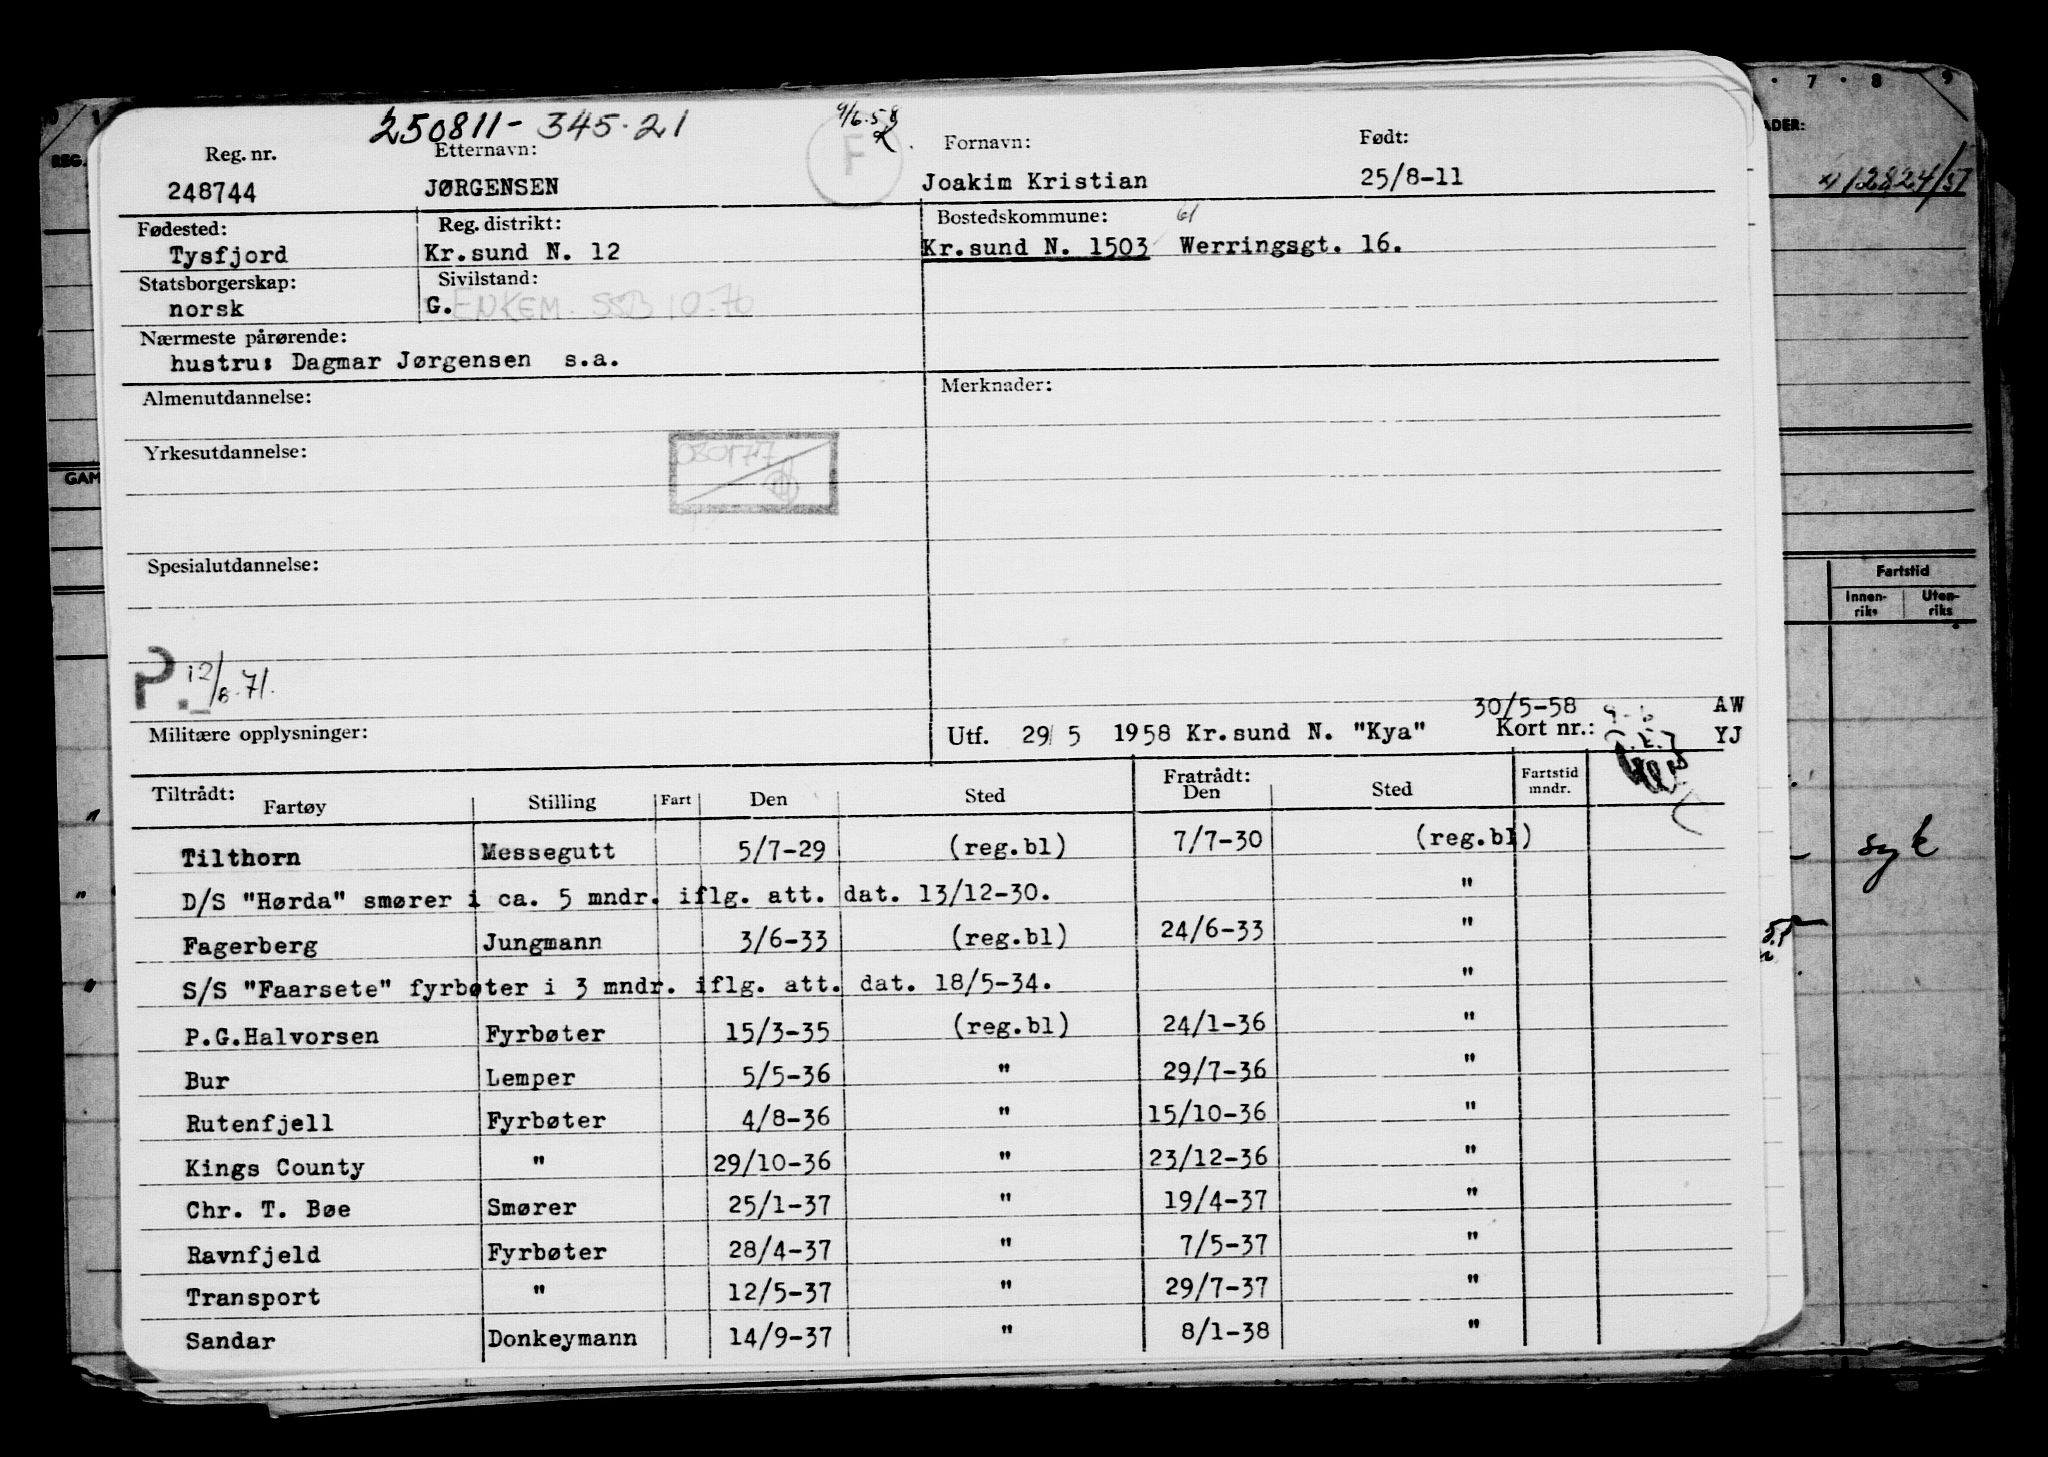 250811- 345.21
9/6.58
F
Reg. nr. Etternavn: Fornavn: Født:
248744 JØRGENSEN Joakim Kristian 25/8-11
Fødested: Reg. distrikt: Bostedskommune: 61
Tysfjord Kr.sund N. 12 Kr.sund N. 1503 Werringsgt. 16.
Statsborgerskap: Sivilstand:
norsk G. ENKEM. SSB 10-76
Nærmeste pårørende:
hustru: Dagmar Jørgensen s.a.
Almenutdannelse: Merknader:
Yrkesutdannelse:
Spesialutdannelse:
P. 12/8.71.
30/5-58 AW
Militære opplysninger: Utf. 29/5 1958 Kr.sund N. "Kya" Kort nr.: YJ
Tiltrådt: Fratrådt:
Fartøy Stilling Fart Den Sted Den Sted Fartstid mndr.
Tilthorn Messegutt 5/7-29 (reg.bl) 7/7-30 (reg.bl)
D/S "Hørda" smører i ca. 5 mndr. iflg. att. dat. 13/12-30. "
Fagerberg Jungmann 3/6-33 (reg.bl) 24/6-33 "
S/S "Faarsete" fyrbøter i 3 mndr. iflg. att. dat. 18/5-34. "
P.G.Halvorsen Fyrbøter 15/3-35 (reg.bl) 24/1-36 "
Bur Lemper 5/5-36 " 29/7-36 "
Rutenfjell Fyrbøter 4/8-36 " 15/10-36 "
Kings County " 29/10-36 " 23/12-36 "
Chr. T. Bøe Smører 25/1-37 " 19/4-37 "
Ravnfjeld Fyrbøter 28/4-37 " 7/5-37 "
Transport " 12/5-37 " 29/7-37 "
Sandar Donkeymann 14/9-37 " 8/1-38 "
REG.
GAM
7 · 8 9
ADER:
12824/57
Fartstid
Innen-
riks
Uten-
riks
syk